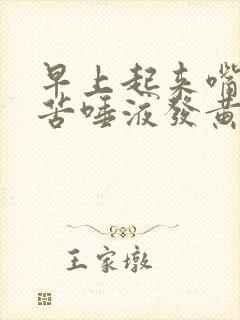 早上起来嘴
苦唾液發黃
王家墩